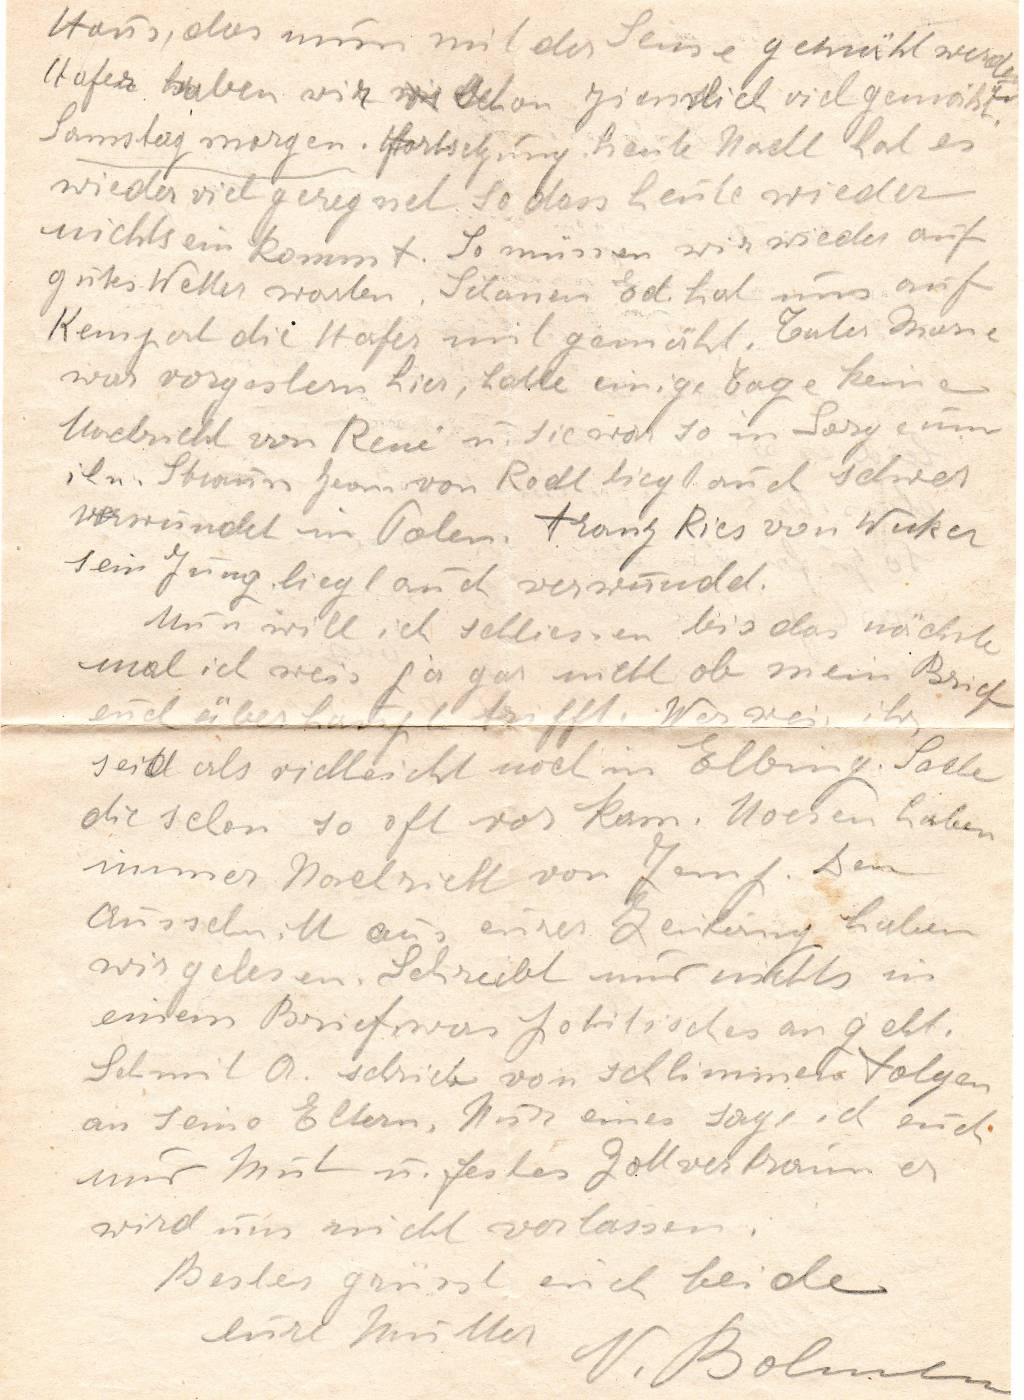 Haus, das mum mit der Sense gemäht werden
Hafer haben wir schon ziemlich viel gemäht.
Samstag morgen. Fortsetzung heute Nacht hat es
wieder viel geregnet so dass heute wieder
nichts ein kommt. So müssen wir wieder auf
gutes Wetter warten. Ed. hat uns auf
die Hafer mit gemäht. Marie
war vorgestern hier, hatte einige Tage keine
Nachricht von René u. sie war so in Sorge um
ihn. Jean von Rodt liegt auch schwer
verwundet in Polen. Franz Ries von
sein Jung liegt auch verwundet.
Nun will ich schliessen bis das nächste
mal ich weis ja gar nicht ob mein Brief
euch überhaupt trifft. Wer weis ihr
seid als vielleicht noch in Elbing. Sache
die schon so oft vor kam. haben
immer Nachricht von Jemp. Den
Ausschnitt aus eurer Zeitung haben
wir gelesen. Schreibt nur nichts in
einem Brief was politisches an geht.
Schmit A. schrieb von schlimmen Folgen
an seine Eltern. Nur eines sage ich euch
nur Mut u. festes Gottvertrauen er
wird uns nicht verlassen.
Bestes grüsst euch beide
eure Mutter